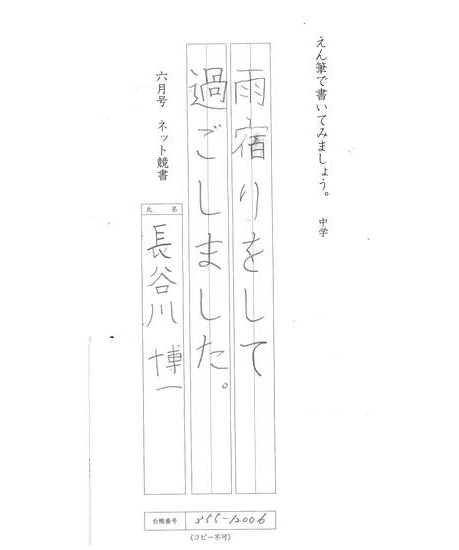 えん筆で書いてみましょう。 中学
雨宿りをして
過ごしました。
六月号 ネット競書
氏名
長谷川 博一
台帳番号 355-12006
(コピー不可)